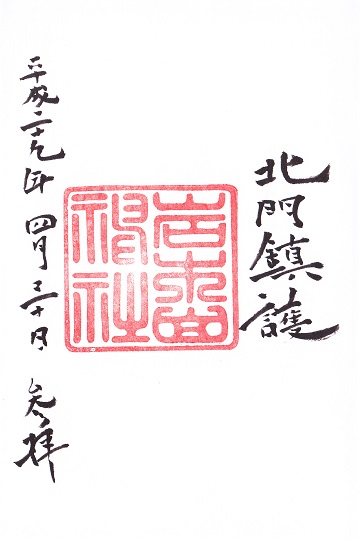 北門鎮護
岩木山
神社
平成二十九年 四月三十日 参拝